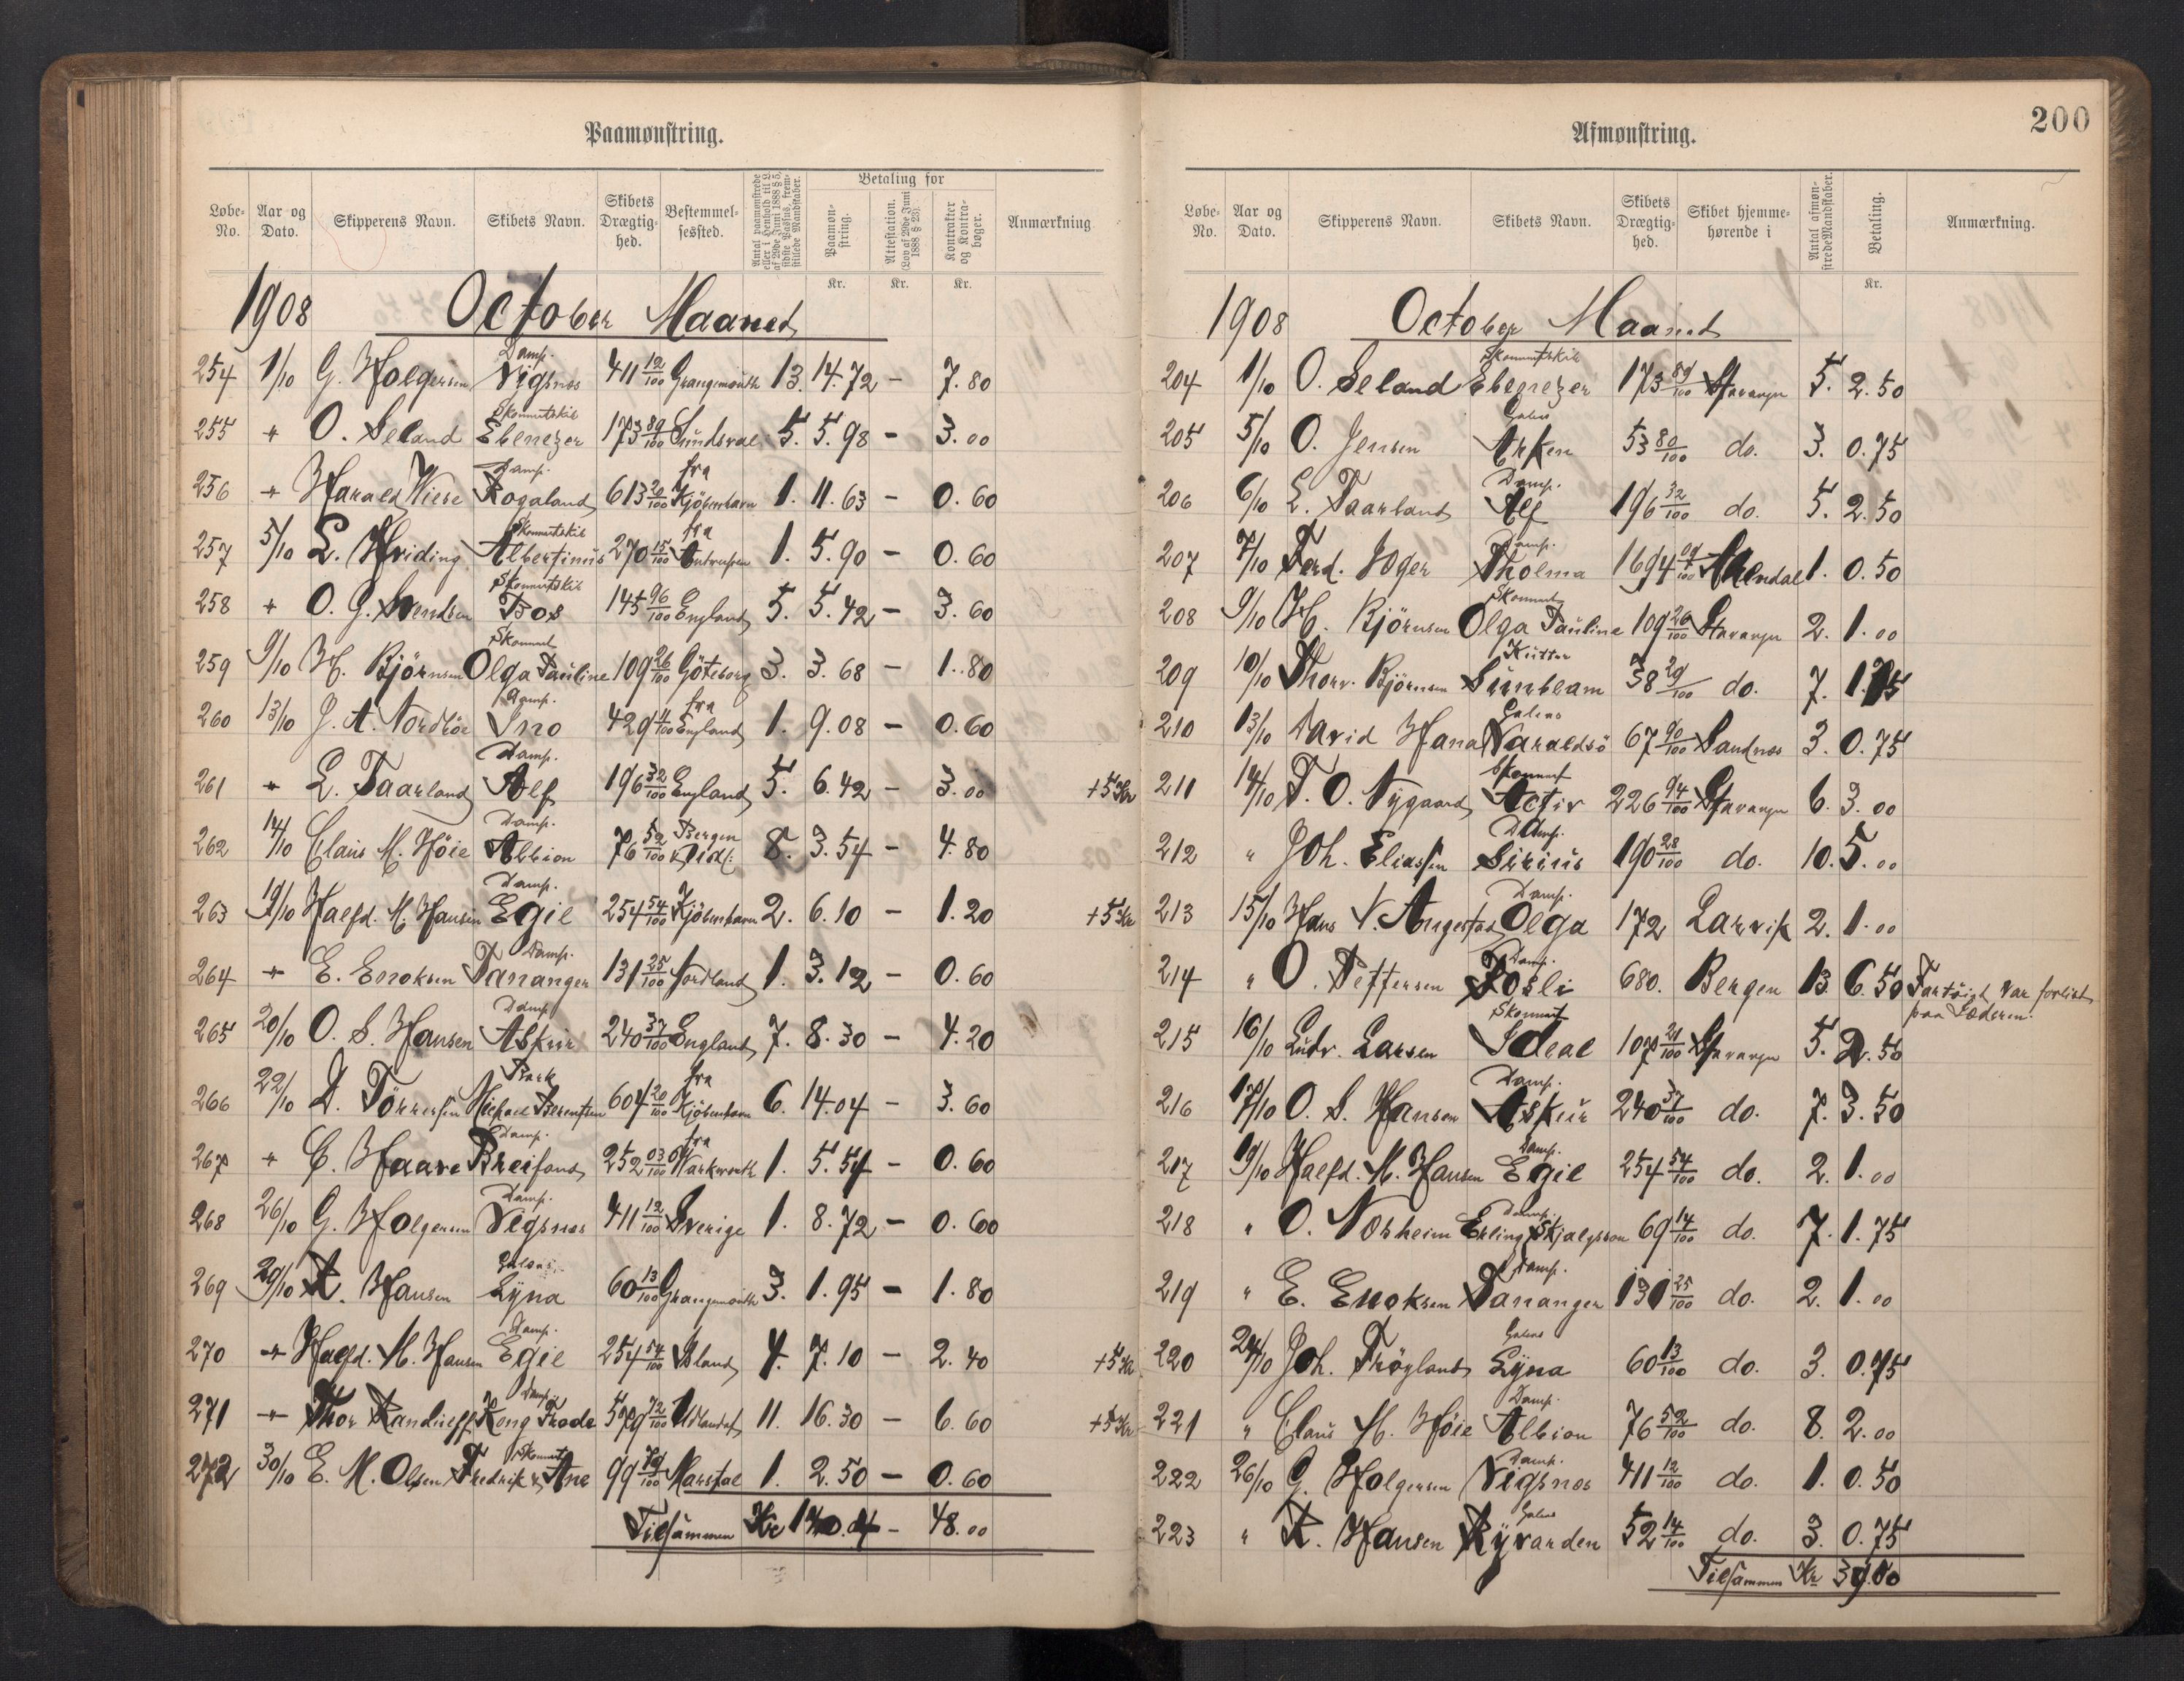 Paamønstring.
Løbe-No.
Aar og Dato.
Skipperens Navn.
Skibets Navn.
Skibets Drægtig-hed.
Bestemmel-sessted.
Antal paamønstrede eller i Henhold til L. af 29de Juni 1888 § 5, sidste Passus, frem-stillede Mandskaber.
Betaling for
Paamøn-string.
Attestation. (Lov af 29de Juni 1888 § 23).
Kontrakter og Kontra-bøger.
Anmærkning
Kr. Kr. Kr.
1908 October Maaned
254 1/10 G. Holgersen Damp. Vigsnes 411 12/100 Grangemouth 13. 14.72 – 7.80
255 " O. Seland Skonnertskib Ebenezer 173 89/100 Sundsval 5. 5.98 – 3.00
256 " Harald Wiese Damp. Rogaland 613 20/100 fra Kjöbenhavn 1. 11.63 – 0.60
257 5/10 L. Hviding Skonnertskib Albertinus 270 15/100 fra Antverpen 1. 5.90 – 0.60
258 " O. G. Svendsen Skonnertskib Bos 145 96/100 England 5. 5.42 – 3.60
259 9/10 H. Björnsen Skonnert Olga Pauline 109 26/100 Göteborg 3. 3.68 – 1.80
260 13/10 J. A. Nordböe Damp. Ino 429 4/100 fra England 1. 9.08 – 0.60
261 " L. Taarland Damp. Alf 196 32/100 England 5. 6.42 – 3.00 +5 Kr
262 14/10 Claus M. Höie Damp. Albion 76 52/100 Bergen 8. 3.54 – 4.80
263 19/10 Halfd. M. Hansen Damp. Egil 254 54/100 Kjöbenhavn 2. 6.10 – 1.20 +5 Kr
264 " E. Enoksen Damp. Tananger 131 25/100 Nordland 1. 3.12 – 0.60
265 20/10 O. S. Hansen Damp Askur 240 37/100 England 7. 8.30 – 4.20
266 22/10 D. Törressen Bark Michael Berentsen 604 20/100 fra Kjöbenhavn 6. 14.04 – 3.60
267 " C. Haave Damp. Breifond 252 03/100 fra Warkworth 1. 5.54 – 0.60
268 26/10 G. Holgersen Damp. Vigsnes 411 12/100 Sverige 1. 8.72 – 0.60
269 29/10 R. Hansen Galeas. Lyna 60 13/100 Grangemouth 3. 1.95 – 1.80
270 " Halfd. M. Hansen Damp. Egil 254 54/100 Island 4. 7.10 – 2.40 +5 Kr
271 " Thor Damp. Kong Frode 579 72/100 Udlandet 11. 16.30 – 6.60 +5 Kr
272 30/10 E. M. Olsen Skonnert Fredrik & Ane 99 Marstal 1. 2.50 – 0.60
Tilsammen Kr 140.04 – 48.00
200
Afmønstring.
Løbe-No.
Aar og Dato.
Skipperens Navn.
Skibets Navn.
Skibets Drægtig-hed.
Skibet hjemme-hørende i
Antal afmøn-strede Mandskaber.
Betaling.
Anmærkning.
Kr.
1908 October Maaned
204 1/10 O. Seland Skonnertskib Ebenezer 173 89/100 Stavanger 5. 2.50
205 5/10 O. Jensen Galeas Arken 53 80/100 do. 3. 0.75
206 6/10 L. Taarland Damp. Alf 196 32/100 do. 5. 2.50
207 7/10 Ferd. Joger Damp. Tholma 1694 09/100 Arendal 1. 0.50
208 9/10 H. Björnsen Skonnert Olga Pauline 109 26/100 Stavanger 2. 1.00
209 10/10 Thorv. Björnsen Kutter Sunbeam 38 29/100 do. 7. 1.75
210 13/10 David Hana Galeas Varaldsö 67 90/100 Sandnes 3. 0.75
211 14/10 T. O. Nygaard Skonnert Activ 226 94/100 Stavanger 6. 3.00
212 " Joh. Eliassen Damp. Sirius 190 28/100 do. 10. 5.00
213 15/10 Hans N. Angestad Damp. Olga 172 Larvik 2. 1.00
214 " O. Peffersen Damp. Fosli 680. Bergen 13. 6.50 Fartöiet var forlist
paa Jæderen.
215 16/10 Ludv. Larsen Skonnert Ideal 107 21/100 Stavanger 5. 2.50
216 17/10 O. S. Hansen Damp. Askur 240 37/100 do. 7. 3.50
217 19/10 Halfd. M. Hansen Damp. Egil 254 54/100 do. 2. 1.00
218 " O. Nosheim Damp. Erling Skjalgsson 69 14/100 do. 7. 1.75
219 " E. Enoksen Damp. Tananger 131 25/100 do. 2. 1.00
220 24/10 Joh. Fröyland Galeas Lyna 60 13/100 do. 3. 0.75
221 " Claus M. Höie Damp. Albion 76 52/100 do. 8. 2.00
222 26/10 G. Holgersen Damp. Vigsnes 411 12/100 do. 1. 0.50
223 " R. Hansen Galeas Ryvarden 52 14/100 do. 3. 0.75
Tilsammen Kr 39.00